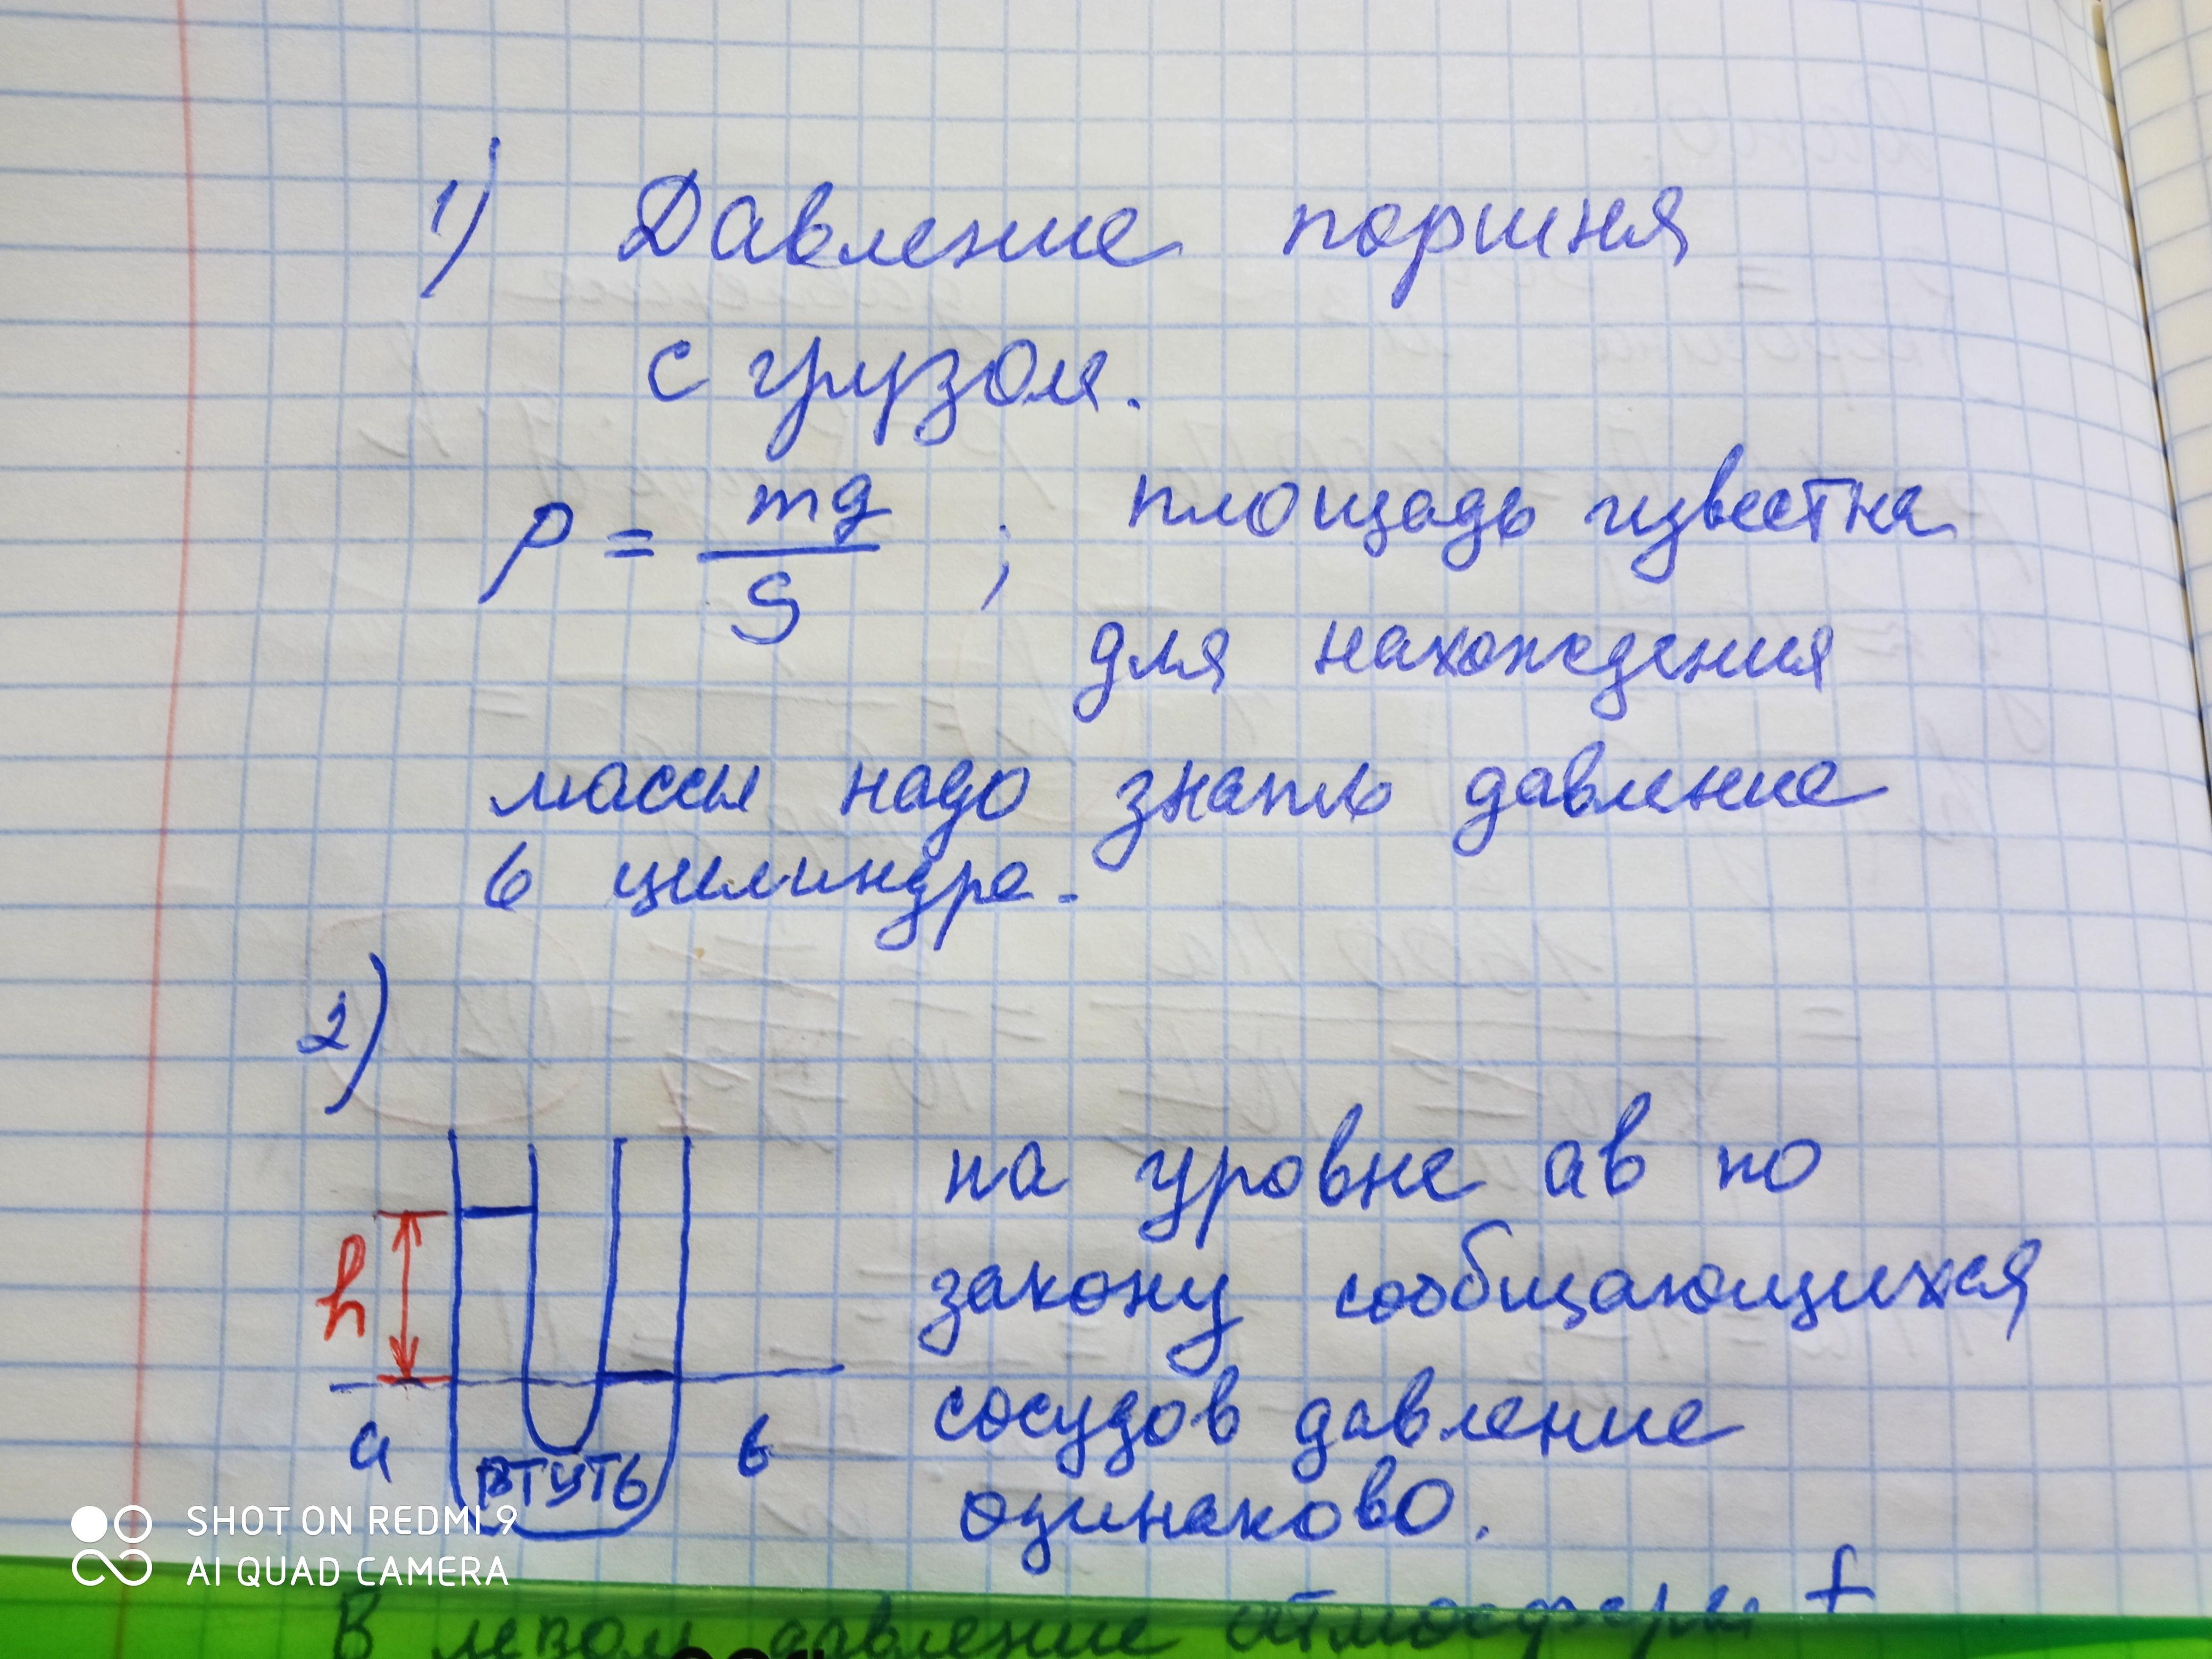 1) Давление поршня
с грузом.
P = mg / S ; площадь известна
для нахождения
массы надо знать давление
в цилиндре.
2)
на уровне ав по
закону сообщающихся
сосудов давление
одинаково.
h
а в
ртуть
SHOT ON REDMI 9
AI QUAD CAMERA
В левом давление атмосферы +